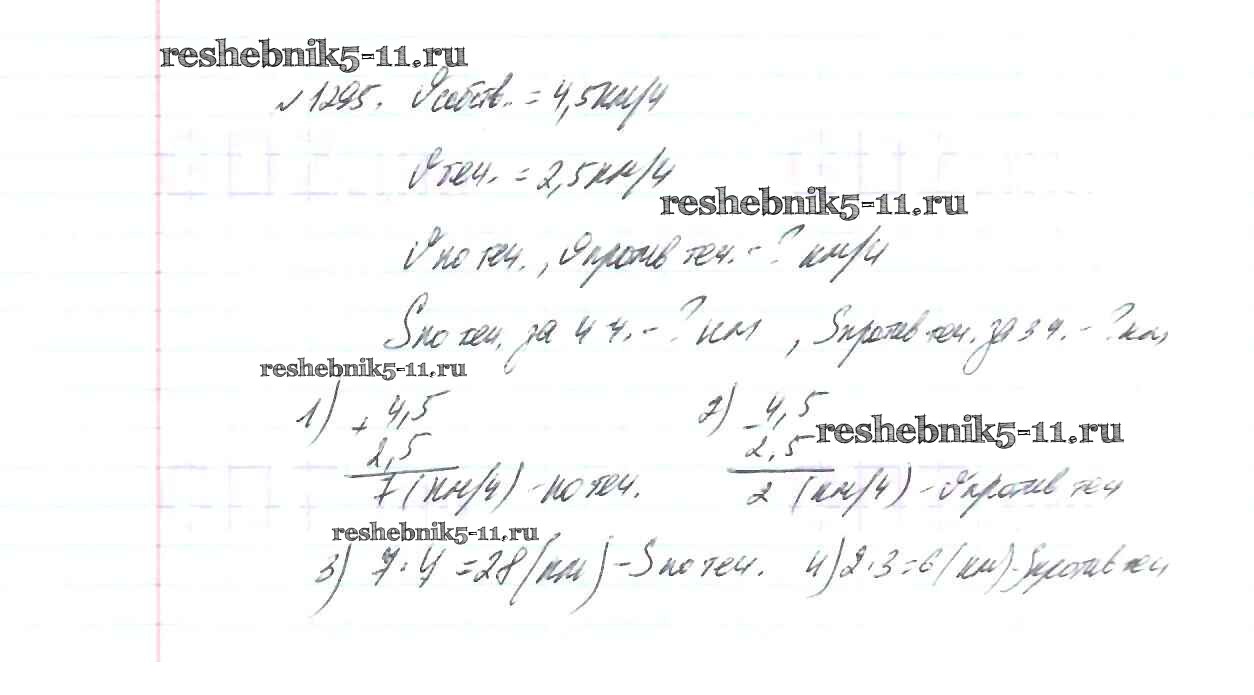 reshebnik5-11.ru
№1295. Vсобств. = 4,5км/ч
Vтеч. = 2,5км/ч
reshebnik5-11.ru
Vпо теч., Vпротив теч. - ? км/ч
Sпо теч. за 4 ч. - ? км , Sпротив теч. за 3 ч. - ? км
reshebnik5-11.ru
1) + 4,5 2) - 4,5
reshebnik5-11.ru
2,5 2,5
7 (км/ч) - по теч. 2 (км/ч) - Vпротив теч
reshebnik5-11.ru
3) 7 · 4 = 28 (км) - Sпо теч. 4) 2 · 3 = 6 (км) - Sпротив теч